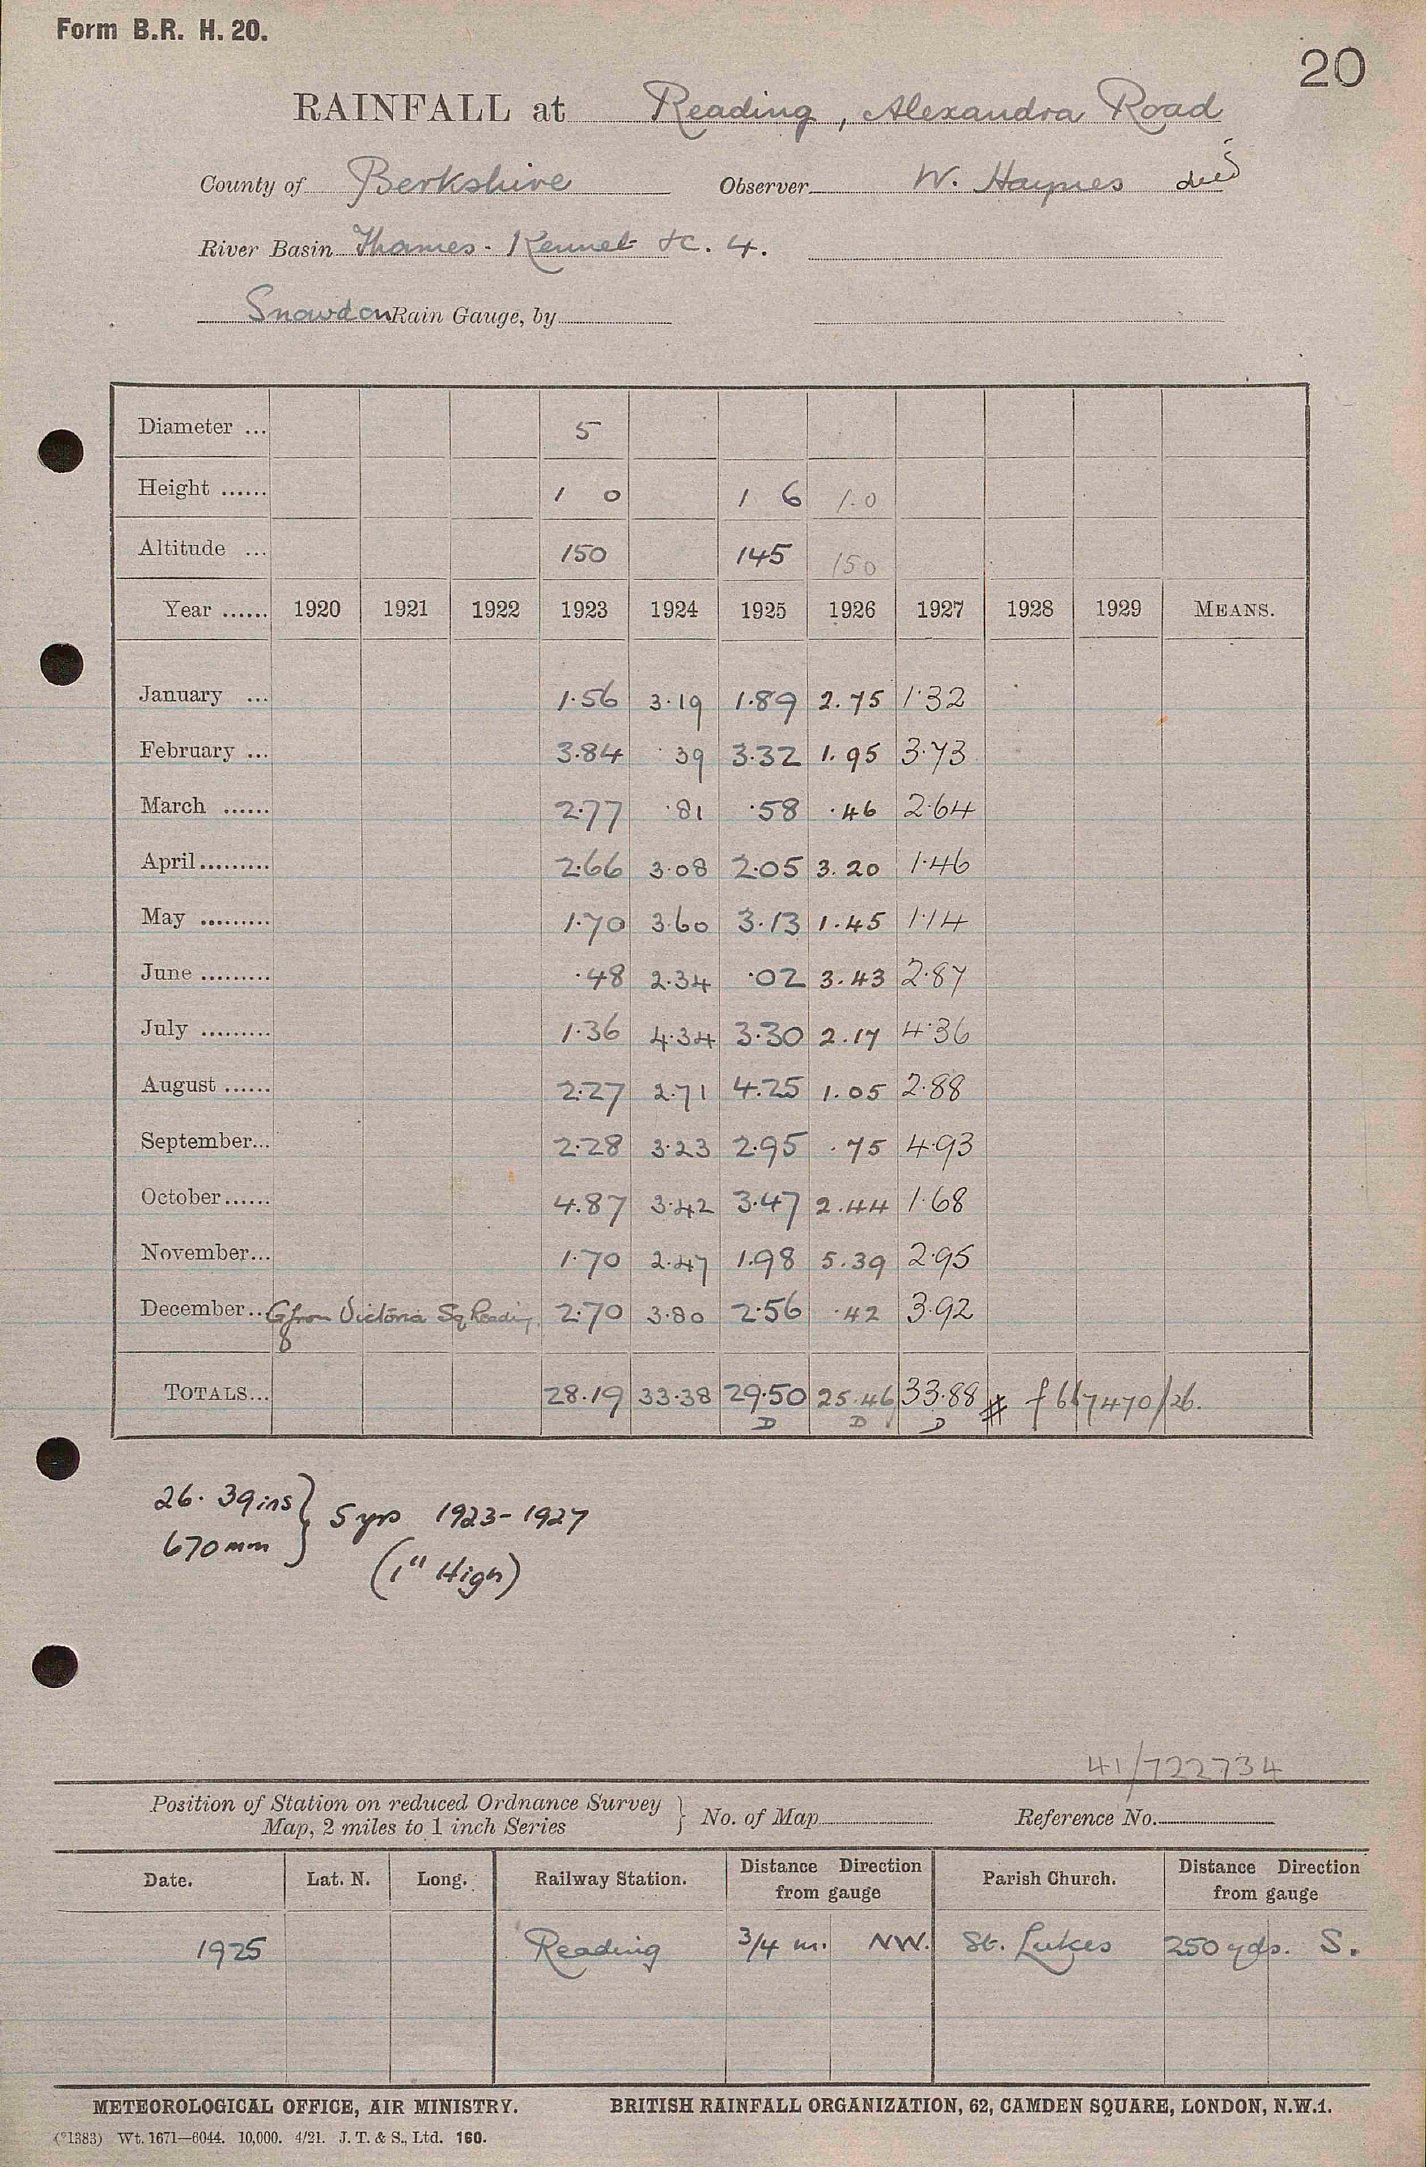 Form B.R. H. 20.
20
RAINFALL at Reading, Alexandra Road
County of Berkshire Observer W. Haynes
River Basin Thames - Kennet &c. 4.
Snowdon Rain Gauge, by
Diameter ... 5
Height ...... 1 0 1 6 1.0
Altitude ... 150 145 150
Year ...... 1920 1921 1922 1923 1924 1925 1926 1927 1928 1929 MEANS.
January ... 1.56 3.19 1.89 2.75 1.32
February ... 3.84 .39 3.32 1.95 3.73
March ...... 2.77 .81 .58 .46 2.64
April ......... 2.66 3.08 2.05 3.20 1.46
May ......... 1.70 3.60 3.13 1.45 1.14
June ......... .48 2.34 .02 3.43 2.87
July ......... 1.36 4.34 3.30 2.17 4.36
August ...... 2.27 2.71 4.25 1.05 2.88
September... 2.28 3.23 2.95 .75 4.93
October...... 4.87 3.42 3.47 2.44 1.68
November... 1.70 2.47 1.98 5.39 2.95
December... from Victoria Sq Reading 2.70 3.80 2.56 .42 3.92
TOTALS... 28.19 33.38 29.50 25.46 33.88 # f 667470/26.
D D D
26.39 ins } 5 yrs 1923-1927
670 mm
(1" High)
41/722734
Position of Station on reduced Ordnance Survey Map, 2 miles to 1 inch Series } No. of Map Reference No.
Date. Lat. N. Long. Railway Station. Distance Direction from gauge Parish Church. Distance Direction from gauge
1925 Reading 3/4 m. NW. St. Lukes 250 yds. S.
METEOROLOGICAL OFFICE, AIR MINISTRY. BRITISH RAINFALL ORGANIZATION, 62, CAMDEN SQUARE, LONDON, N.W.1.
(*1383) Wt. 1671—6044. 10,000. 4/21. J. T. & S., Ltd. 160.